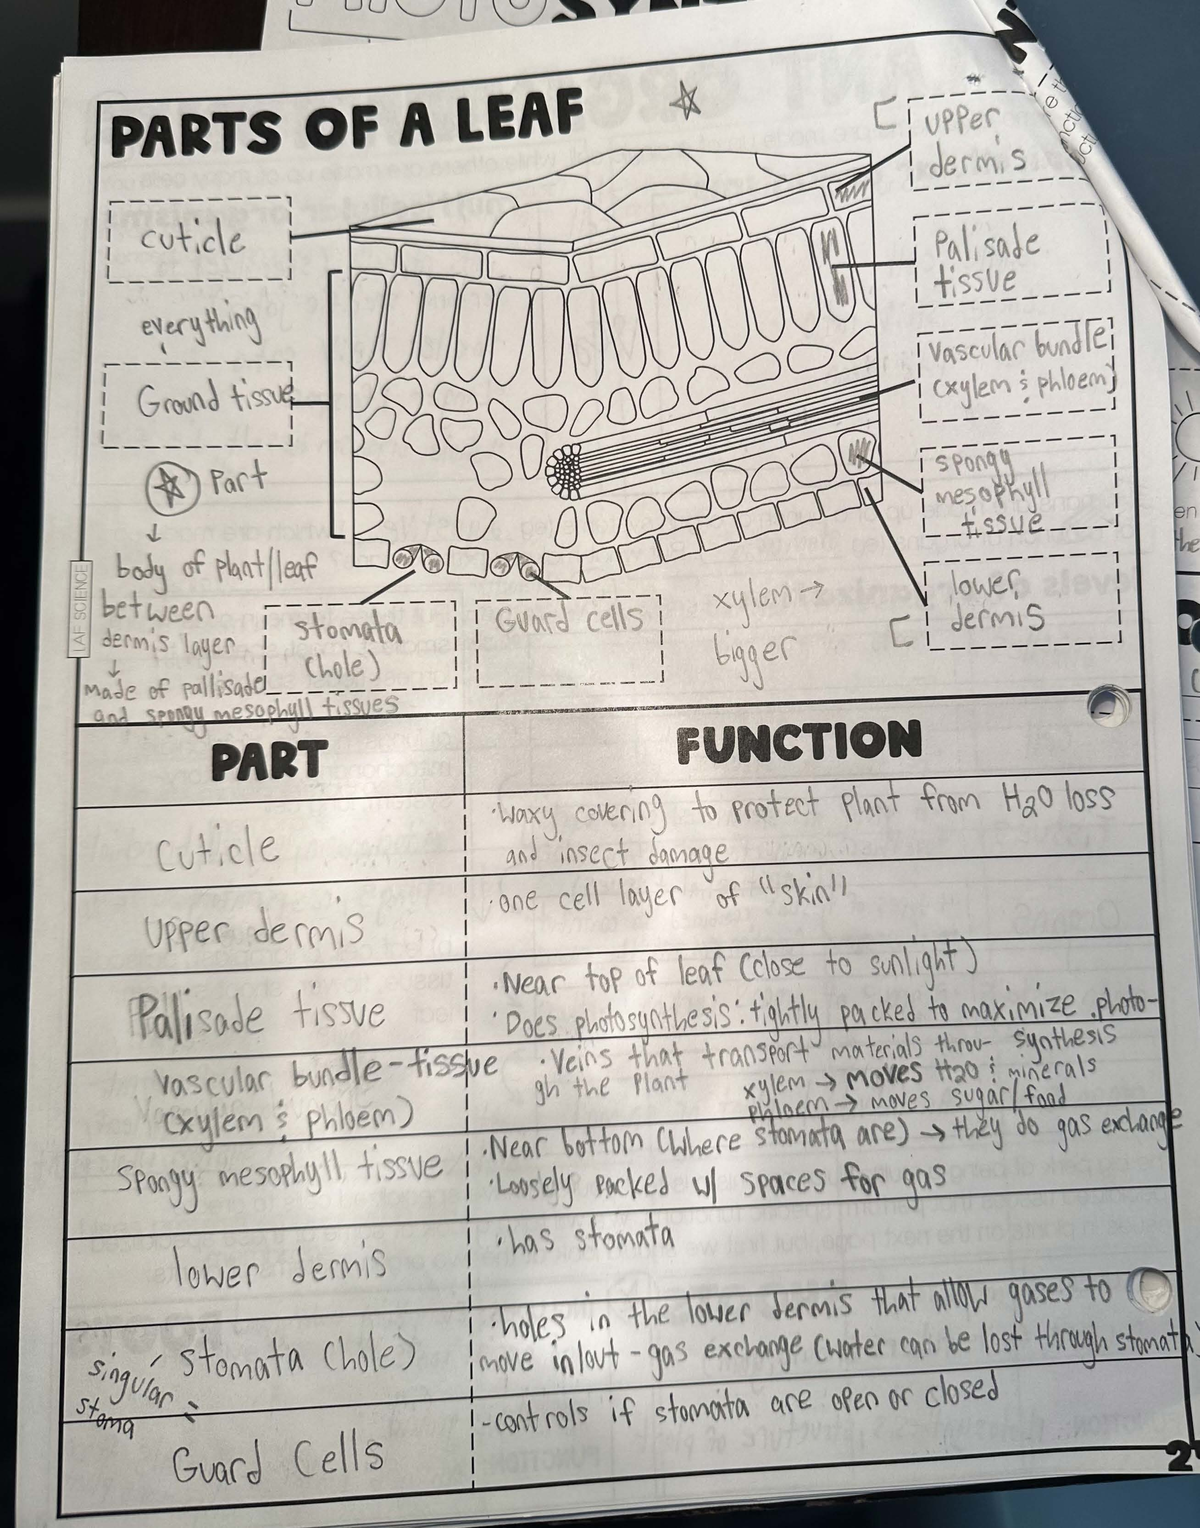 PARTS OF A LEAF
cuticle
everything
Ground tissue
Part
body of plant/leaf
between
dermis layer
made of pallisade
and spongy mesophyll tissues
LAF SCIENCE
stomata
(hole)
Guard cells
xylem →
bigger
upper
dermis
Palisade
tissue
vascular bundle
(xylem & phloem)
spongy
mesophyll
tissue
lower
dermis
PART
FUNCTION
cuticle
·waxy covering to protect plant from H2O loss
and insect damage
upper dermis
·one cell layer of "skin"
Palisade tissue
·Near top of leaf (close to sunlight)
·Does photosynthesis: tightly packed to maximize photo-
synthesis
vascular bundle-tissue
(xylem & phloem)
·veins that transport materials throu-
gh the plant
xylem → moves H2O & minerals
phloem → moves sugar/food
spongy mesophyll tissue
·Near bottom (where stomata are) → they do gas exchange
·Loosely packed w/ spaces for gas
lower dermis
·has stomata
stomata (hole)
singular =
stoma
·holes in the lower dermis that allow gases to
move in/out - gas exchange (water can be lost through stomata)
Guard Cells
-controls if stomata are open or closed